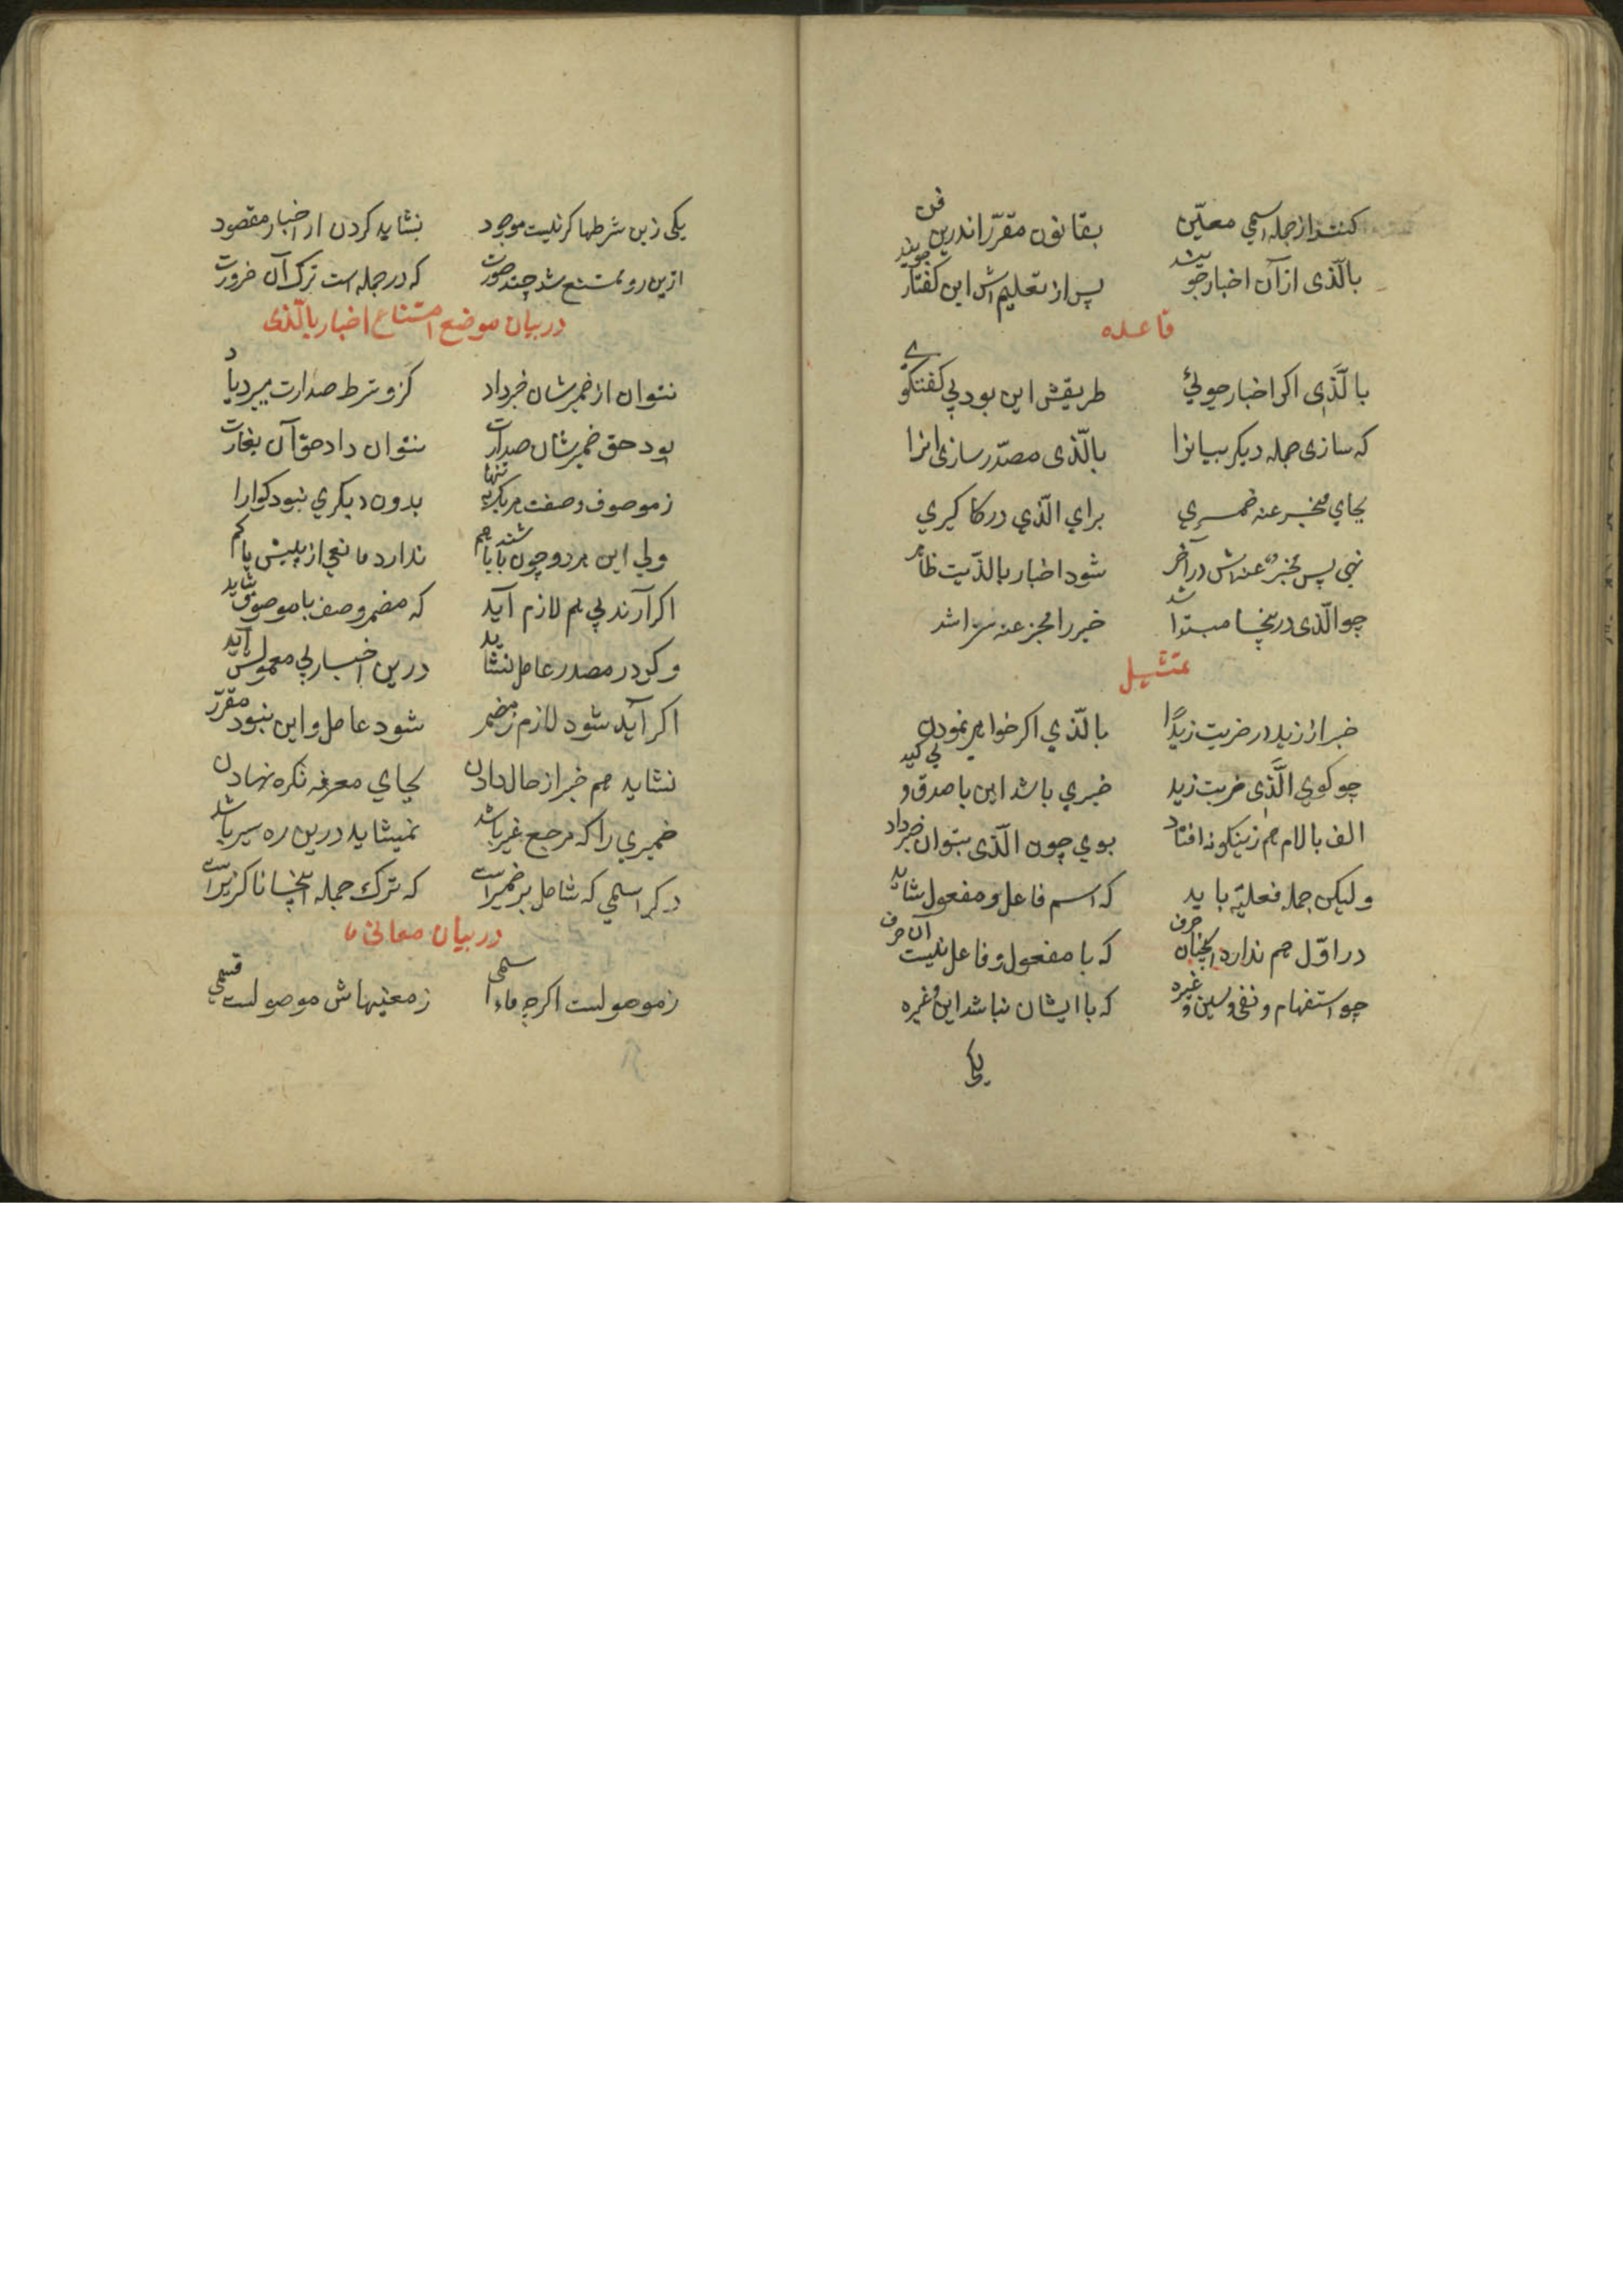 کنند از جمله اسمی معیّن بقانون مقرّر اندرین فن
بالّذی از آن اخبار جویند پس از تعلیم اش این گفتار جویند
قاعده
بالّذی اکر اخبار جوئی طریقش این بود بی کفتکوے
که سازی جمله دیکر بیانرا بالّذی مصدّر سازی انرا
بجای مخبر عنه ضمیری برای الّذی در کا کیری
نهی پس مخبر عنه اش در آخر شود اخبار بالذّیت ظاهر
چو الّذی درینجا مبتدا شد خبر را مخبر عنه سزا شد
تمثیل
خبر از زید در ضربت زیدًا بالّذی اکر خواهی نمودن
چو کوی الّذی ضربت زید خبری باشد این با صدق و بی کید
الف بالام هم زینکونه افتاد بوی چون الّذی بتوان خبر داد
ولیکن جمله فعلیّه باید که اسم فاعل و مفعول شاید
در اوّل هم ندارد انچنان حرف که با مفعول و فاعل نیست آن حرف
چو استفهام و نفی و سین و غیره که با ایشان نباشد این و غیره
یکی
یکی زین شرطها کر نیست موجود نشاید کردن از اخبار مقصود
ازین رو ممتنع شد چند صورت که در جمله است ترک آن ضرورت
در بیان موضع امتناع اخبار بالّذی
نتوان از ضمیر شان خبر داد کزو شرط صدارت میرد یاد
بود حق ضمیر شان صدارت نتوان داد حق آن بغارت
ز موصوف و صفت هر یک به تنها بدون دیکری نبود کوارا
ولی این هر دو چون باشند با هم ندارد مانعی از پیش یا کم
اکر آرند پی هم لازم آید که مضمر وصف با موصوف شاید
و کر در مصدر عامل نشاید درین اخبار بی معمولش آید
اکر آید شود لازم ز مضمر شود عامل و این نبود مقرّر
نشاید هم خبر از حال دادن بجای معرفه نکره نهادن
ضمیری را که مرجع غیر باشد نمیشاید درین ره سیر باشد
دکر اسمی که شامل بر ضمیر است که ترک جمله اینجا ناکزیر است
در بیان معانی ما
ز موصولست اکرچه ماء اسمی ز معنیهاش موصولست قسمی